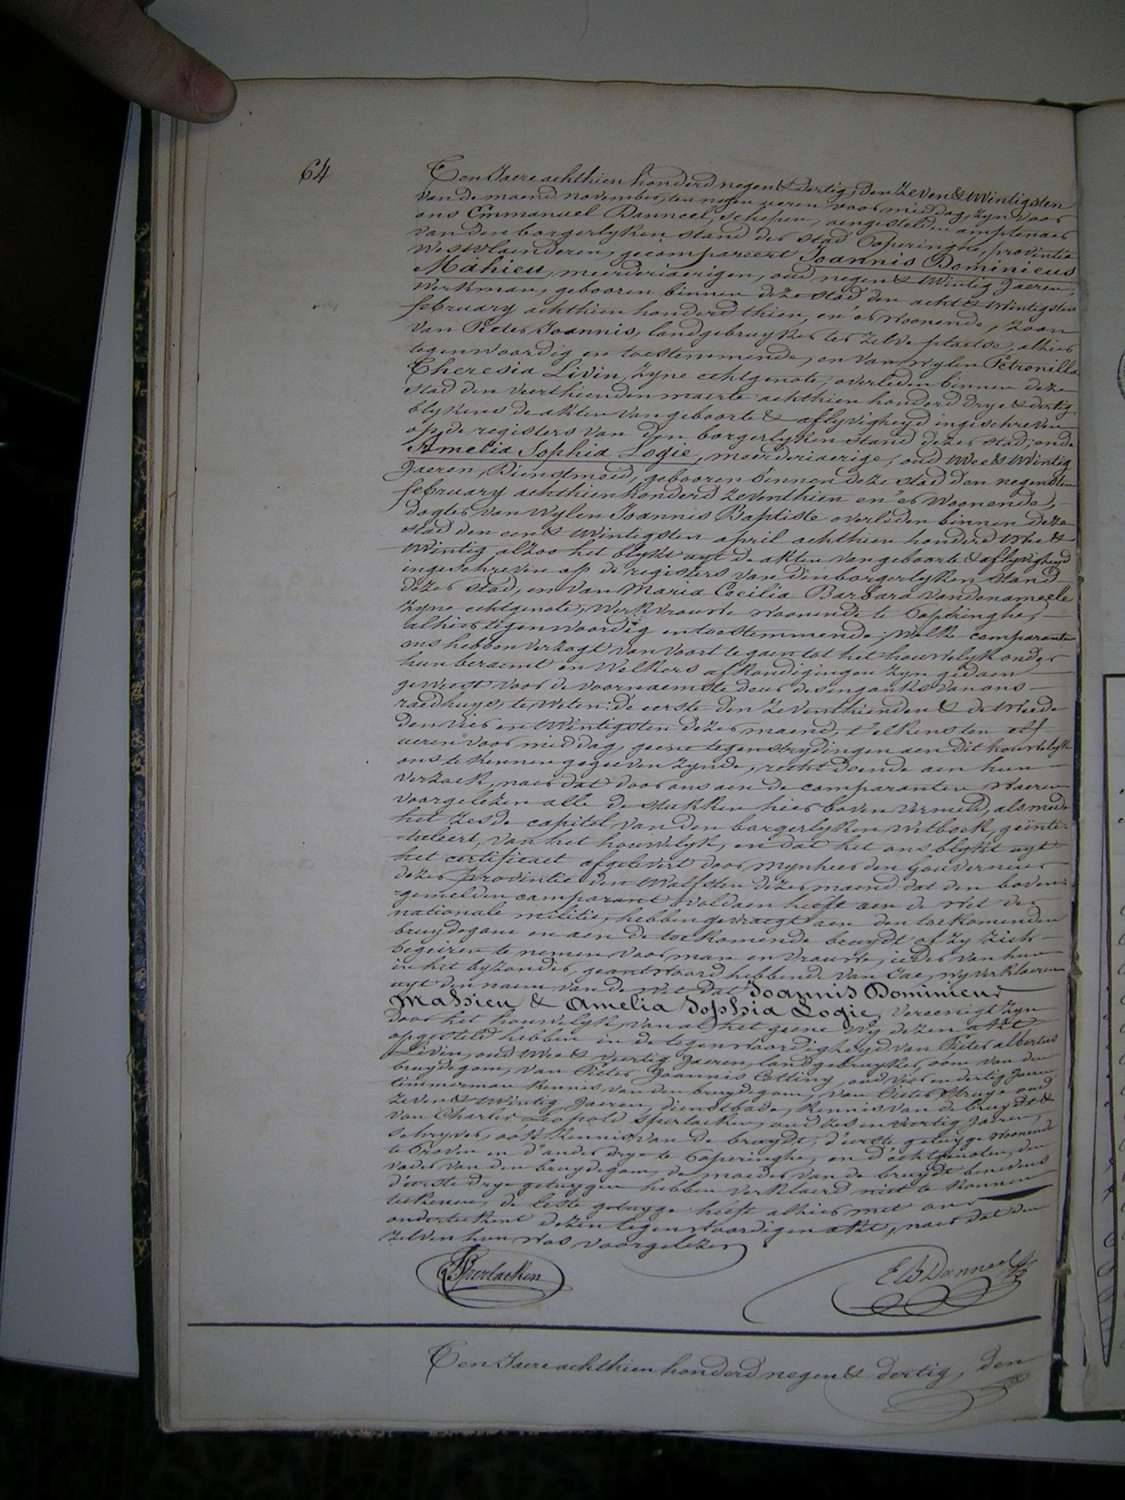 64
Ten Jaere achthien honderd negen & dertig, den zeven & twintigsten
van de maend november, ten negen ueren voor middag, zyn voor
ons Emmanuel Danneel, Schepen, aengestelden amptenaer
van den borgerlyken stand der stad Poperinghe, provintie
Westvlaenderen, gecompareert Joannis Dominicus
Mahieu, meerderjaerigen, oud negen & twintig Jaeren,
werkman, gebooren binnen deze stad den acht & twintigsten
february achthien honderd thien, en er woonende, zoon
van Pieter Joannis, landgebruyker ter zelve plaetse, alhier
tegenwoordig en toestemmende, en van wylen Petronilla
Theresia Livin, zyne echtgenote, overleden binnen deze
stad den veerthienden maerte achthien honderd drye & dertig,
blykens de akten van geboorte & aflyvigheyd ingeschreven
op de registers van den borgerlyken stand dezer stad; ende
Amelia Sophia Logie, meerderjaerige, oud twee & twintig
Jaeren, Dienstmeid, gebooren binnen deze stad den negensten
february achthien honderd zeventhien en er woonende,
dogter van wylen Joannis Baptiste overleden binnen deze
stad den een & twintigsten april achthien honderd twee &
twintig alzoo het blykt uyt de akten van geboorte & aflyvigheyd
ingeschreven op de registers van den borgerlyken stand
dezer stad, en van Maria Cecilia Barbara Vandenameele
zyne echtgenote, werkvrouwe woonende te Poperinghe,
alhier tegenwoordig en toestemmende; welke comparanten
ons hebben verzogt van voort te gaen tot het houwelyk onder
hun beraemt en welkers afkondigingen zyn gedaen
geweest voor de voornaemste deur des ingankx van ons
raedhuys, te weten: de eerste den zeventhienden & de tweede
den vier en twintigsten dezer maend, t'elkensten elf
ueren voor middag, geene tegenstrydingen aen dit houwelyk
ons te kennen gegeeven zynde, recht doende aen hun
verzoek, naer dat door ons aen de comparanten waeren
voorgelezen alle de stukken hier boven vermeld, als mede
het zesde capitel van den borgerlyken wetboek, geinti-
tuleert, van het houwelyk, en dat het ons blykt uyt
het certificaet afgelevert door mynheer den Gouverneur
dezer provintie den twalfsten dezer maend dat den boven
gemelden comparant voldaen heeft aen de wet der
nationale militie, hebben gevraegt aen den toekomenden
bruydegom en aen de toekomende bruydt of zy zich
begeiren te nemen voor man en vrouwe, ieder van hun
in het byzonder, geantwoord hebbende van Jae, wy verklaeren
uyt den naem van de wet dat Joannis Dominicus
Mahieu & Amelia Sophia Logie, vereenigt zyn
door het houwelyk, van al het geene wy dezen akt
opgesteld hebben in de tegenwoordigheyd van Pieter albertus
Livin, oud twee & veertig Jaeren, landgebruyker, oom van den
bruydegom, van Pieter Joannis Cottiny, oud vier en dertig Jaeren
timmerman kennis van den bruydegom, van Pieter Struye oud
zeven & twintig Jaeren, dienstbode, kennis van de bruydt &
van Charles Leopold Spurlacken, oud zes en veertig Jaeren,
schryver, ook kennis van de bruydt, d'eerste getuyge woonende
te Proven en d'ander drye te Poperinghe, en d'echtgenoten, den
vader van den bruydegom, de moeder van de bruydt benevens
d'eerste drye getuygen hebben verklaerd niet te konnen
teekenen, de leste getuyge heeft alhier met ons
onderteekent dezen tegenwoordigen akt, naer dat den
zelven hun was voorgelezen
Spurlacken
E D Danneel
Ten Jaere achthien honderd negen & dertig, den